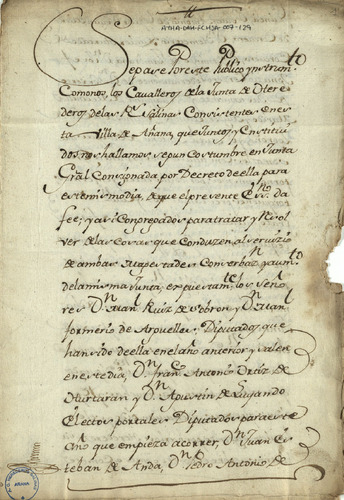 ATHA-DAH-FCHSA-007-129
Sepase por este Publico ynstrum.to
Como nos, los Cavalleros de la Junta de Diere
deros de las R.s Salinas Consistentes en es
ta Villa de Añana, que Juntos y Constitui
dos nos hallamos, segun Costumbre en Junta
Gral Consignada por Decreto de ella para
este mismo dia, de que el presente Ess.no da
fee; y asi Congregados para tratar y Resol
ver de las Cosas que Conduzen, al servizio
de ambas Magestades Conserbaz.n y aum.to
de la misma Junta, es pues tam.te los Seño
res D.n Man.l Ruiz de Sobron y D.n Man.l
formerio de Arguelles, Diputados que
han sido de ella en el año anterior, y salen
en este dia, D.n fran.co Antonio Ortiz de
Hurtaran y D.n Agustin de Luyando
Electos por tales Diputados para este
Año que empieza a correr, D.n Juan Es
teban de Anda, D.n Pedro Antonio de
AÑANA